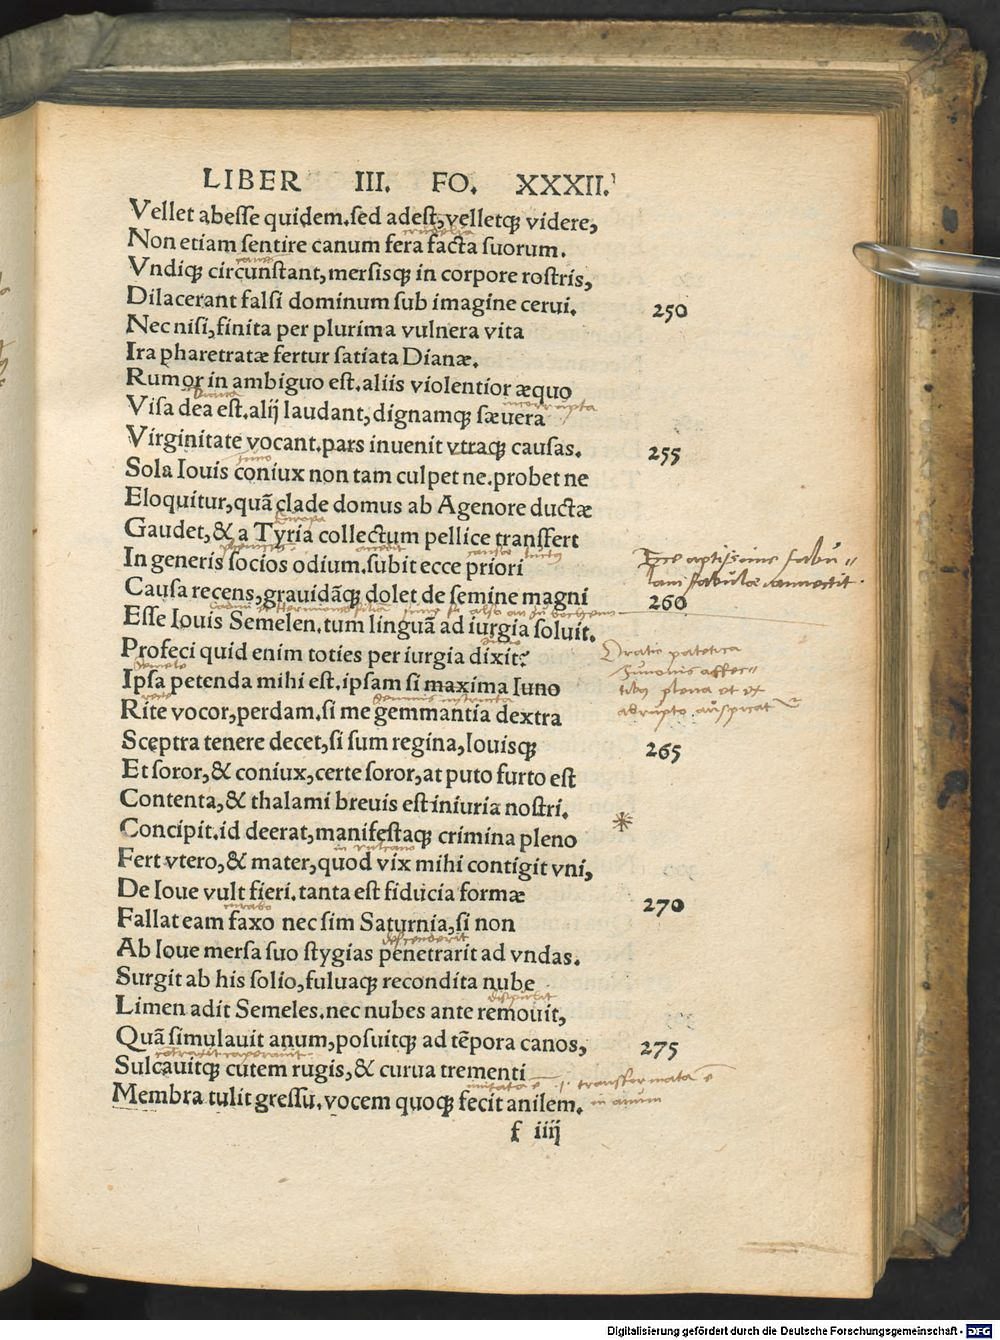 LIBER III. FO. XXXII.
Vellet abesse quidem.sed adest,velletqȝ videre,
crudelia
Non etiam sentire canum fera facta suorum.
canes
Vndiqȝ circunstant,mersisqȝ in corpore rostris,
Dilacerant falsi dominum sub imagine cerui. 250
Nec nisi,finita per plurima vulnera vita
Ira pharetratæ fertur satiata Dianæ.
Rumor in ambiguo est.aliis violentior æquo
Diana incorrupta
Visa dea est.alij laudant,dignamqȝ sæuera
Virginitate vocant.pars inuenit vtraqȝ causas. 255
Juno
Sola Iouis coniux non tam culpet ne.probet ne
Eloquitur,quã clade domus ab Agenore ductæ
Europa
Gaudet,& a Tyria collectum pellice transfert
accedit causa luctus
In generis socios odium.subit ecce priori
Ecce aptissime fabu-
lam fabulae connectit.
Causa recens,grauidãqȝ dolet de semine magni 260
Esse Iouis Semelen.tum linguã ad iurgia soluit.
Juno
Profeci quid enim toties per iurgia dixit?
Oratio patetica
Junonis affec-
tibus plena et ex
abrupto auspicat
Semele
Ipsa petenda mihi est.ipsam si maxima Iuno
recte gemmis instructa
Rite vocor,perdam.si me gemmantia dextra
Sceptra tenere decet,si sum regina,Iouisqȝ 265
Et soror,& coniux,certe soror,at puto furto est
Contenta,& thalami breuis est iniuria nostri.
Concipit.id deerat,manifestaqȝ crimina pleno *
in vulcano
Fert vtero,& mater,quod vix mihi contigit vni,
De Ioue vult fieri.tanta est fiducia formæ 270
curabo
Fallat eam faxo nec sim Saturnia,si non
descenderit
Ab Ioue mersa suo stygias penetrarit ad vndas.
Surgit ab his solio,fuluaqȝ recondita nube
Limen adit Semeles.nec nubes ante remouit,
Quã simulauit anum,posuitqȝ ad tẽpora canos, 275
Sulcauitqȝ cutem rugis,& curua trementi
imitata ẽ .i. transformata ẽ
in anum
Membra tulit gressu.vocem quoqȝ fecit anilem.
f iiij
Digitalisierung gefördert durch die Deutsche Forschungsgemeinschaft - DFG